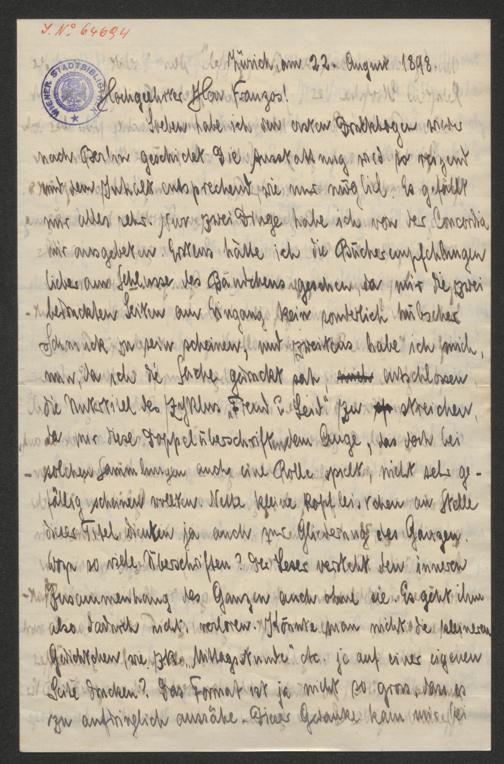 J. N° 64694
WIENER STADTBIBLIOTHEK
Zürich, am 22. August 1898.
Hochgeehrter Herr Franzos!
Soeben habe ich den ersten Druckbogen wieder
nach Berlin geschickt. Die Ausstattung wird so reizend
und dem Inhalt entsprechend, wie nur möglich. Es gefällt
mir alles sehr. Nur zwei Dinge habe ich von der Concordia
mir ausgebeten. Erstens hätte ich die Bücherempfehlungen
lieber am Schlusse des Bändchens gesehen, da mir die zwei
bedruckten Seiten am Eingang kein sonderlich hübscher
Schmuck zu sein scheinen, und zweitens habe ich mich,
nun, da ich die Sache gedruckt sah entschlossen
die Untertitel des Zyklus "Freud u. Leid" zu streichen,
da mir diese Doppelüberschriften dem Auge, das doch bei
solchen Sammlungen auch eine Rolle spielt, nicht sehr ge-
fällig scheinen wollten. Nette kleine Kopfleistchen an Stelle
dieser Titel dienten ja auch zur Gliederung des Ganzen.
Wozu so viele Überschriften? Der Leser versteht den inneren
Zusammenhang des Ganzen auch ohne sie. Es geht ihm
also dadurch nichts verloren. Könnte man nicht die kleineren
Gedichtchen (wie z. B. "Mittagsstunde" etc. je auf einer eigenen
Seite drucken? Das Format ist ja nicht so gross, dass es
zu aufdringlich aussähe. Dieser Gedanke kam mir bei